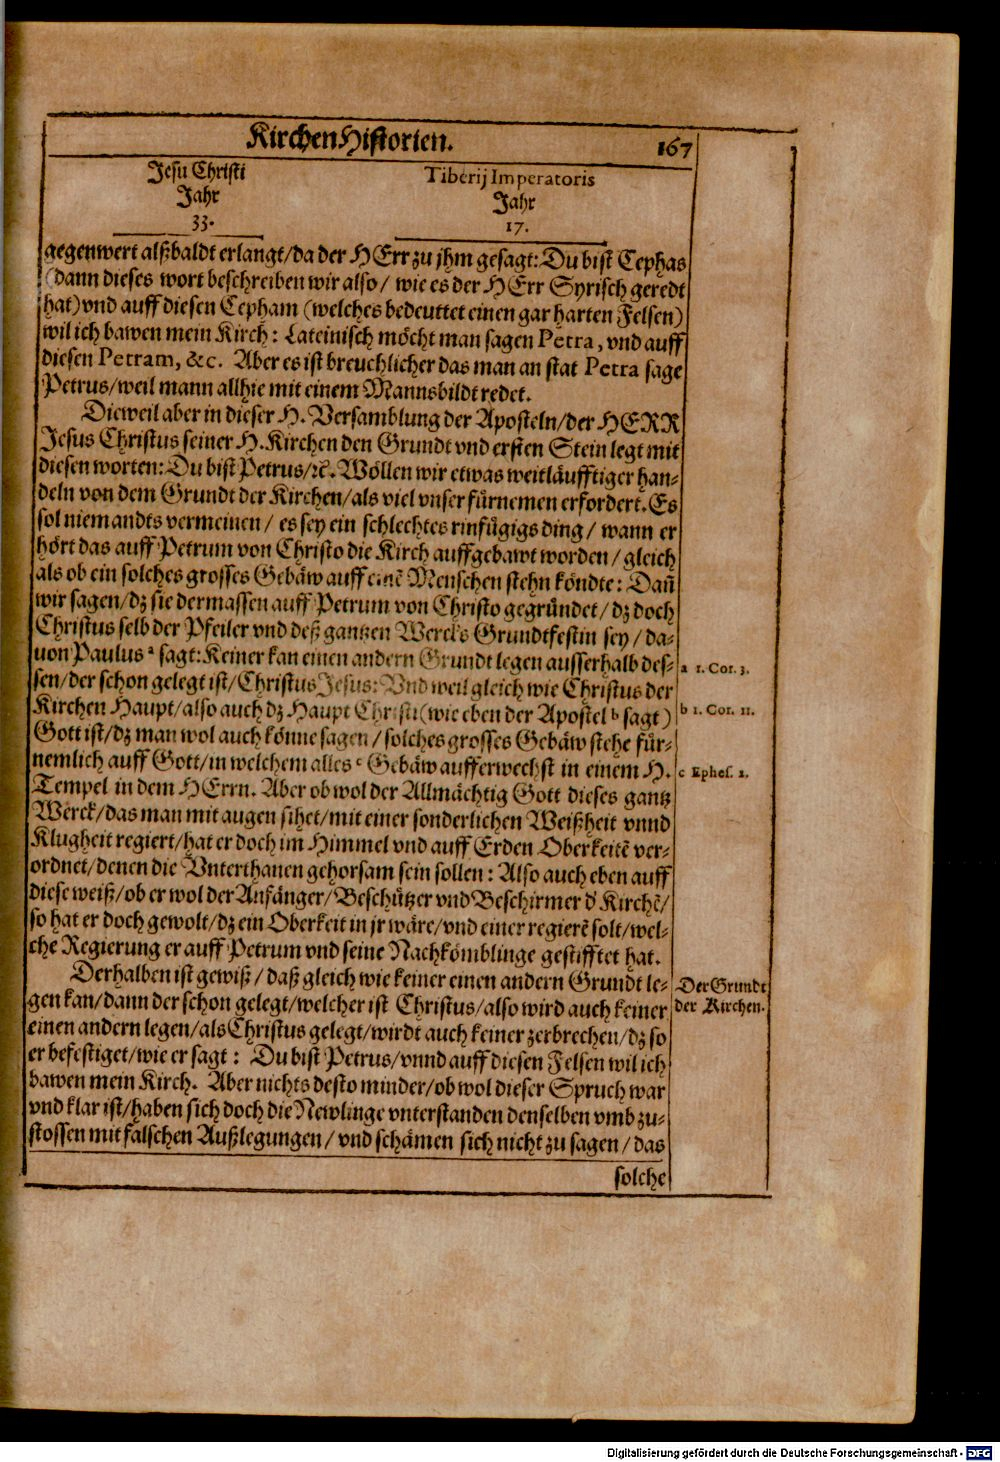 KirchenHistorien. 167
Jesu Christi Tiberij Imperatoris
Jahr Jahr
33. 17.
gegenwert alßbaldt erlangt/da der HErr zu jhm gesagt: Du bist Cephas
(dann dieses wort beschreiben wir also/ wie es der HErr Syrisch geredt
hat) vnd auff diesen Cepham (welches bedeuttet einen gar harten Felsen)
wil ich bawen mein Kirch: Lateinisch möcht man sagen Petra, vnd auff
diesen Petram, &c. Aber es ist breuchlicher das man an stat Petra sage
Petrus/weil mann allhie mit einem Mannsbildt redet.
Dieweil aber in dieser H. Versamblung der Aposteln/der HERR
Jesus Christus seiner H. Kirchen den Grundt vnd ersten Stein legt mit
diesen worten: Du bist Petrus/ꝛc. Wöllen wir etwas weitläufftiger han-
deln von dem Grundt der Kirchen/als viel vnser fürnemen erfordert. Es
sol niemandts vermeinen/ es sey ein schlechtes rinfügigs ding/ wann er
hört das auff Petrum von Christo die Kirch auffgebawt worden/ gleich
als ob ein solches grosses Gebäw auff einē Menschen stehn köndte: Dañ
wir sagen/dz sie dermassen auff Petrum von Christo gegründet/ dz doch
Christus selb der Pfeiler vnd deß gantzen Wercks Grundtfestin sey/ da-
uon Paulus a sagt: Keiner kan einen andern Grundt legen ausserhalb des- a 1. Cor. 3.
sen/der schon gelegt ist/Christus Jesus: Vnd weil gleich wie Christus der
Kirchen Haupt/also auch dz Haupt Christi (wie eben der Apostel b sagt) b 1. Cor. 11.
Gott ist/dz man wol auch könne sagen/ solches grosses Gebäw stehe für-
nemlich auff Gott/in welchem alles c Gebäw aufferwechst in einem H. c Ephes. 2.
Tempel in dem HErrn. Aber ob wol der Allmächtig Gott dieses gantz
Werck/das man mit augen sihet/mit einer sonderlichen Weißheit vnnd
Klugheit regiert/hat er doch im Himmel vnd auff Erden Oberkeitē ver-
ordnet/denen die Vnterthanen gehorsam sein sollen: Also auch eben auff
diese weiß/ob er wol der Anfänger/Beschützer vnd Beschirmer d' Kirchē/
so hat er doch gewolt/dz ein Oberkeit in jr wäre/vnd einer regierē solt/wel-
che Regierung er auff Petrum vnd seine Nachkömblinge gestifftet hat.
Derhalben ist gewiß/ daß gleich wie keiner einen andern Grundt le- Der Grundt
gen kan/dann der schon gelegt/welcher ist Christus/also wird auch keiner der Kirchen.
einen andern legen/als Christus gelegt/wirdt auch keiner zerbrechen/dz so
er befestiget/wie er sagt: Du bist Petrus/vnnd auff diesen Felsen wil ich
bawen mein Kirch. Aber nichts desto minder/ob wol dieser Spruch war
vnd klar ist/haben sich doch die Newlinge vnterstanden denselben vmb zu-
stossen mit falschen Außlegungen/ vnd schämen sich nicht zu sagen/ das
solche
Digitalisierung gefördert durch die Deutsche Forschungsgemeinschaft - DFG